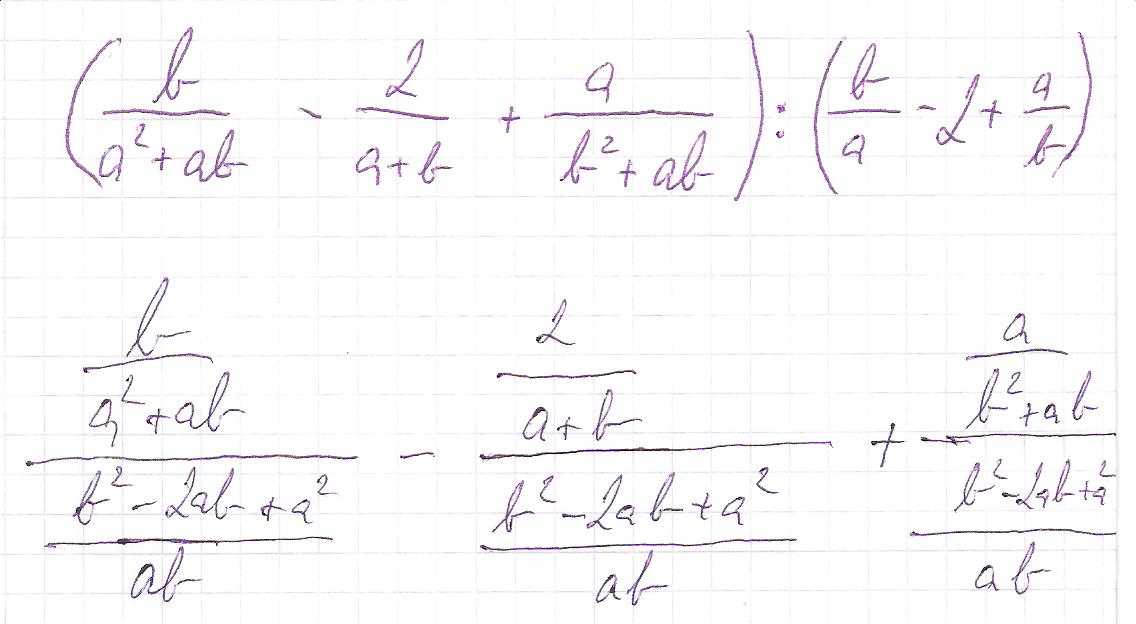 (b/(a²+ab) - 2/(a+b) + a/(b²+ab)) : (b/a - 2 + a/b)
(b/(a²+ab))/((b²-2ab+a²)/(ab)) - (2/(a+b))/((b²-2ab+a²)/(ab)) + (a/(b²+ab))/((b²-2ab+a²)/(ab))